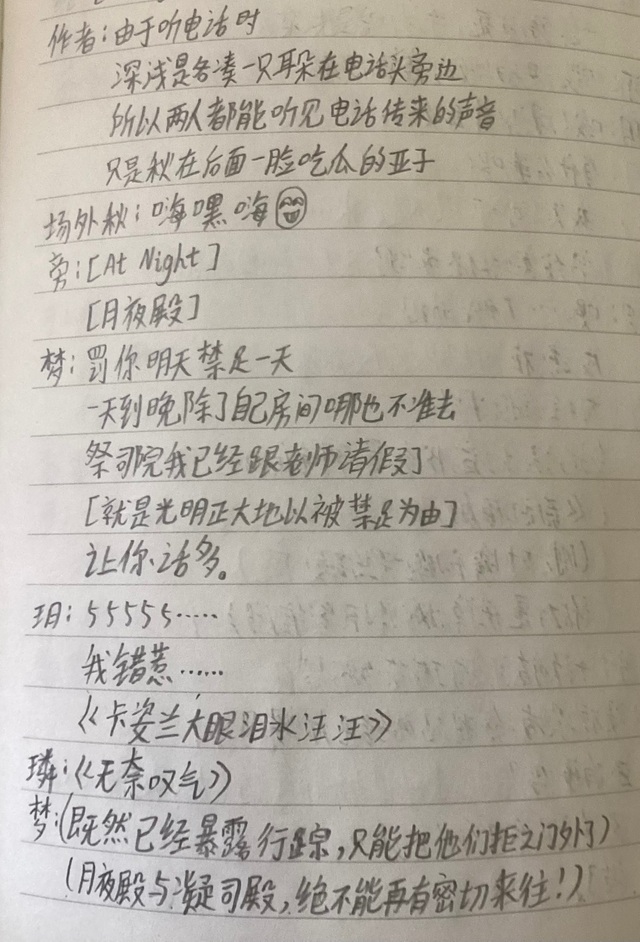 作者:由于听电话时
深浅是各凑一只耳朵在电话头旁边
所以两人都能听见电话传来的声音
只是秋在后面一脸吃瓜的亚子
场外秋:嗨嘿嗨
旁:[At Night]
[月夜殿]
梦:罚你明天禁足一天
一天到晚除了自己房间哪也不准去
祭司院我已经跟老师请假了
[就是光明正大地以被禁足为由]
让你话多。
玥:55555……
我错惹……
《卡姿兰大眼泪水汪汪》
璘:《无奈叹气》
梦:(既然已经暴露行踪,只能把他们拒之门外了)
(月夜殿与凝司殿,绝不能再有密切来往!)